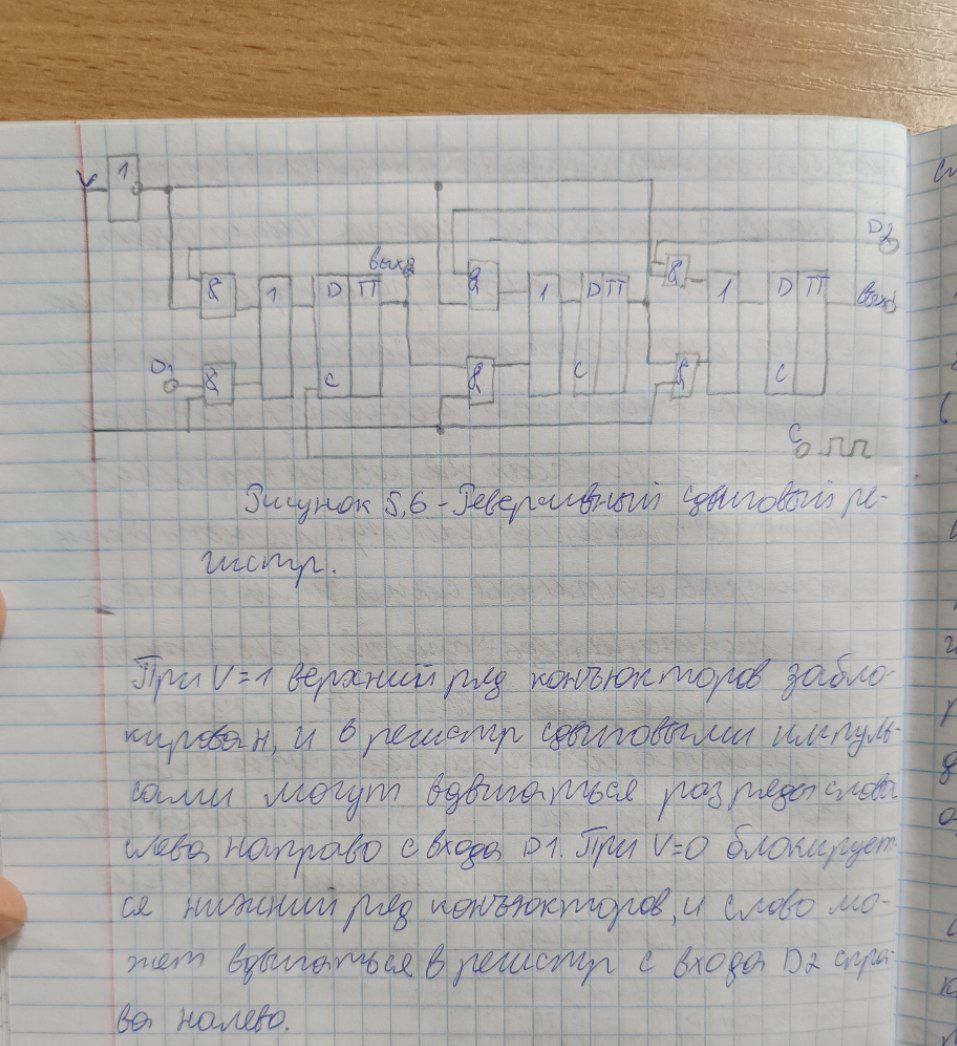 V 1
D2
& 1 D П вых2 & 1 D П & 1 D П вых1
D1 & C & C & C
C
Рисунок 5,6 - Реверсивный сдвиговый ре-
гистр.
При V=1 верхний ряд конъюкторов забло-
кирован, и в регистр сдвиговыми импуль-
сами могут вдвигаться разряды слова
слева направо с входа D1. При V=0 блокирует-
ся нижний ряд конъюкторов, и слово мо-
жет вдвигаться в регистр с входа D2 спра-
ва налево.